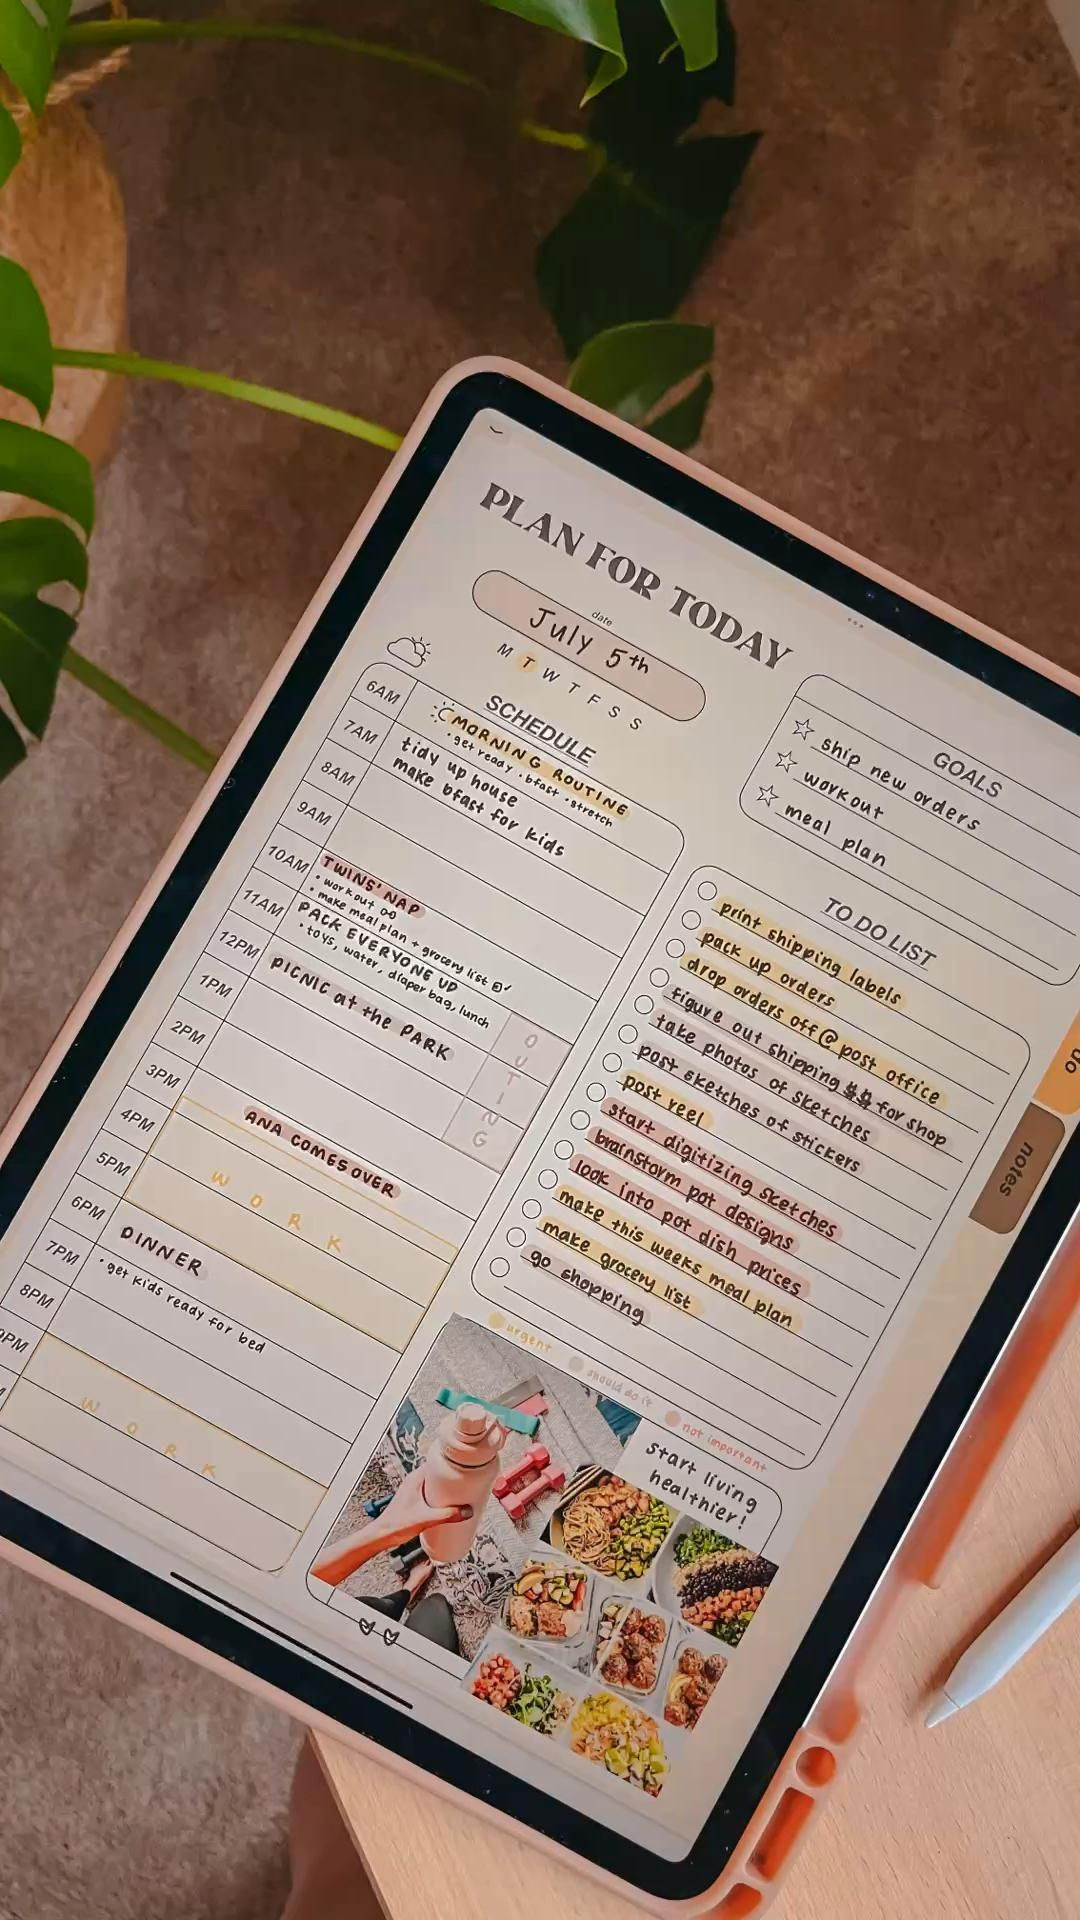 PLAN FOR TODAY
date
July 5th
M T W T F S S
SCHEDULE
6AM
MORNING ROUTINE
• get ready • bfast • stretch
7AM
tidy up house
make bfast for kids
8AM
9AM
10AM
TWINS' NAP
• workout
• make meal plan + grocery list
11AM
PACK EVERYONE UP
• toys, water, diaper bag, lunch
12PM
PICNIC at the PARK
OUTING
1PM
2PM
3PM
ANA COMES OVER
4PM
WORK
5PM
6PM
DINNER
• get kids ready for bed
7PM
8PM
9PM
WORK
GOALS
ship new orders
workout
meal plan
TO DO LIST
print shipping labels
pack up orders
drop orders off @ post office
figure out shipping $$ for shop
take photos of sketches
post sketches of stickers
post reel
start digitizing sketches
brainstorm pot designs
look into pot dish prices
make this weeks meal plan
make grocery list
go shopping
urgent
should do it
not important
start living
healthier!
do
notes